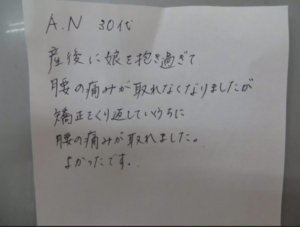 A.N 30代
産後に娘を抱き過ぎて
腰の痛みが取れなくなりましたが
矯正をくり返していくうちに
腰の痛みが取れました。
よかったです。